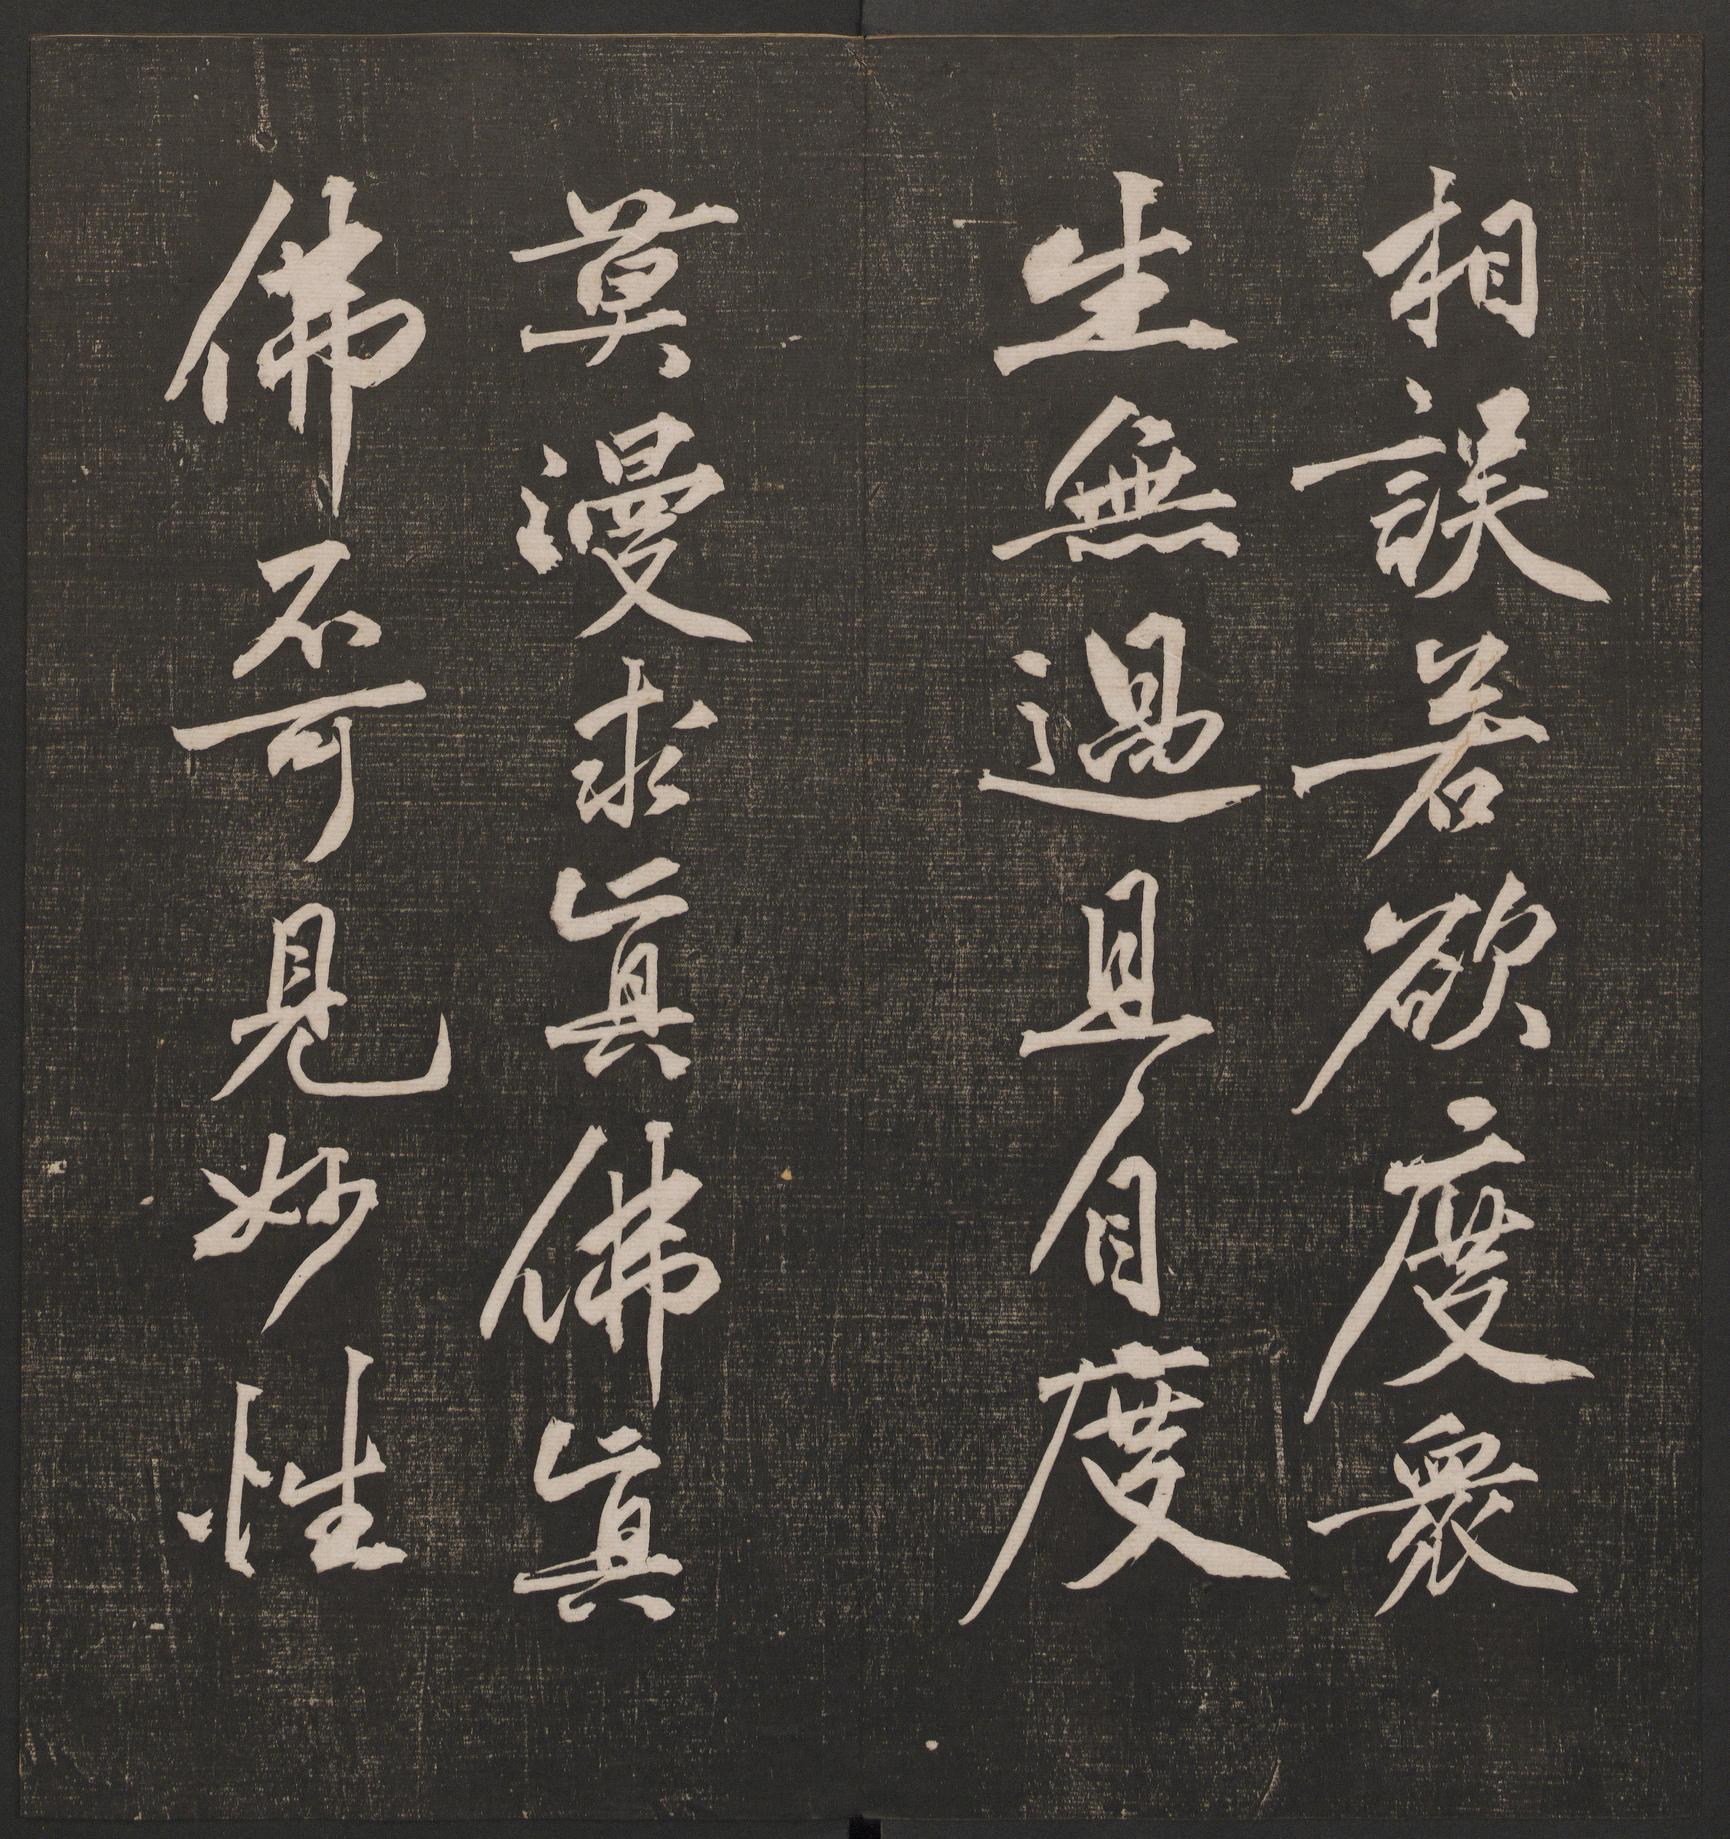 相誤若欲度衆
生無過且自度
莫漫求眞佛眞
佛不可見妙性